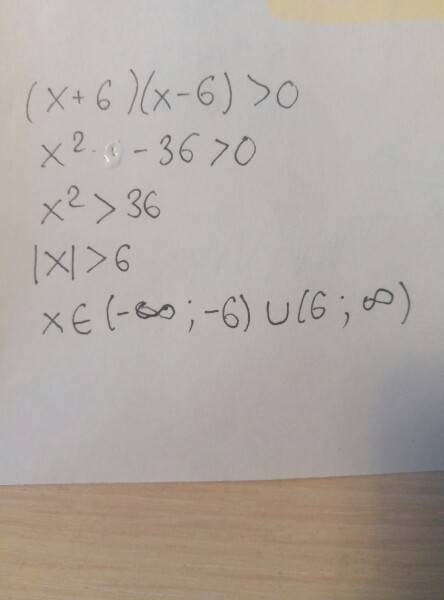 (x+6)(x-6)>0
x² - 36>0
x²>36
|x|>6
x∈(-∞;-6)∪(6;∞)